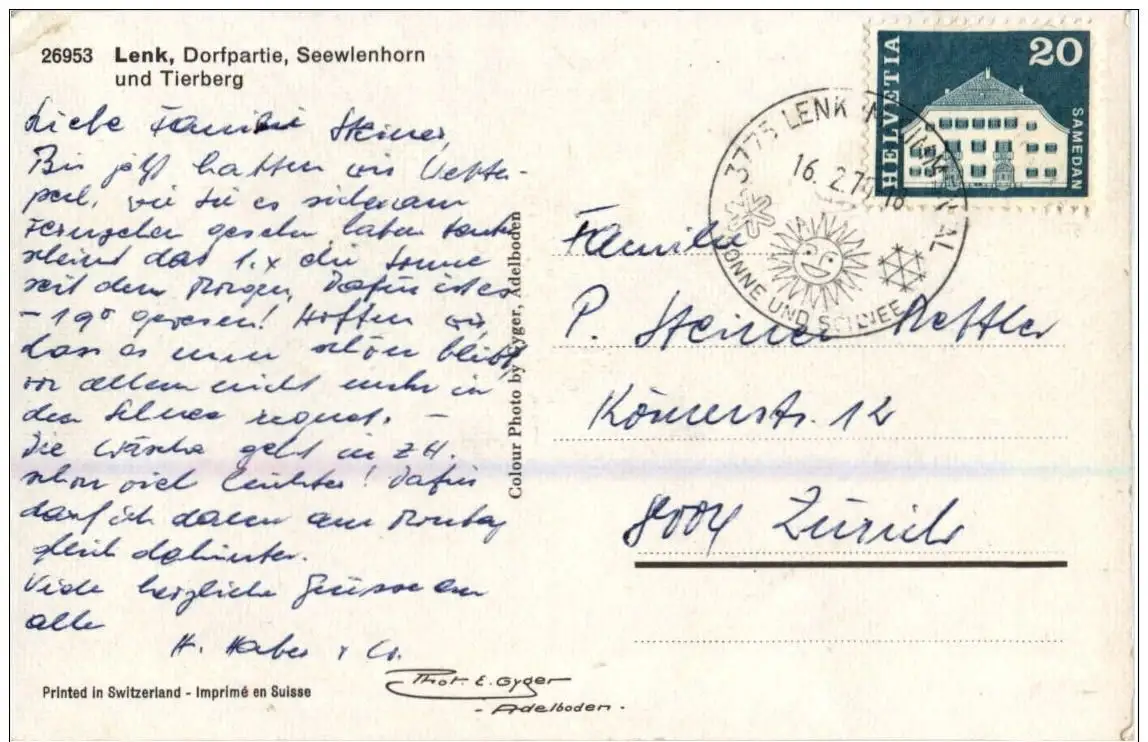 26953 Lenk, Dorfpartie, Seewlenhorn
und Tierberg
Liebe Familie Steiner,
Bis jetzt hatten wir Wetter-
pech, wie Sie es sicher am
Fernsehen gesehen haben. Heute
scheint das 1. x die Sonne
seit dem Morgen, Dafür ist es
-19° gewesen! Hoffen wir,
dass es nun schön bleibt,
vor allem nicht mehr in
den Schnee regnet. -
Die Wäsche geht in ZH.
schon viel leichter! Dafür
darf ich dann am Montag
gleich dahinter.
Viele herzliche Grüsse an
alle
H. Huber + Co.
Printed in Switzerland - Imprimé en Suisse
Phot. E. Gyger
- Adelboden -
Colour Photo by Gyger, Adelboden
HELVETIA
20
SAMEDAN
3775 LENK
16. 2.
SONNE UND SCHNEE
Familie
P. Steiner
8004 Zürich